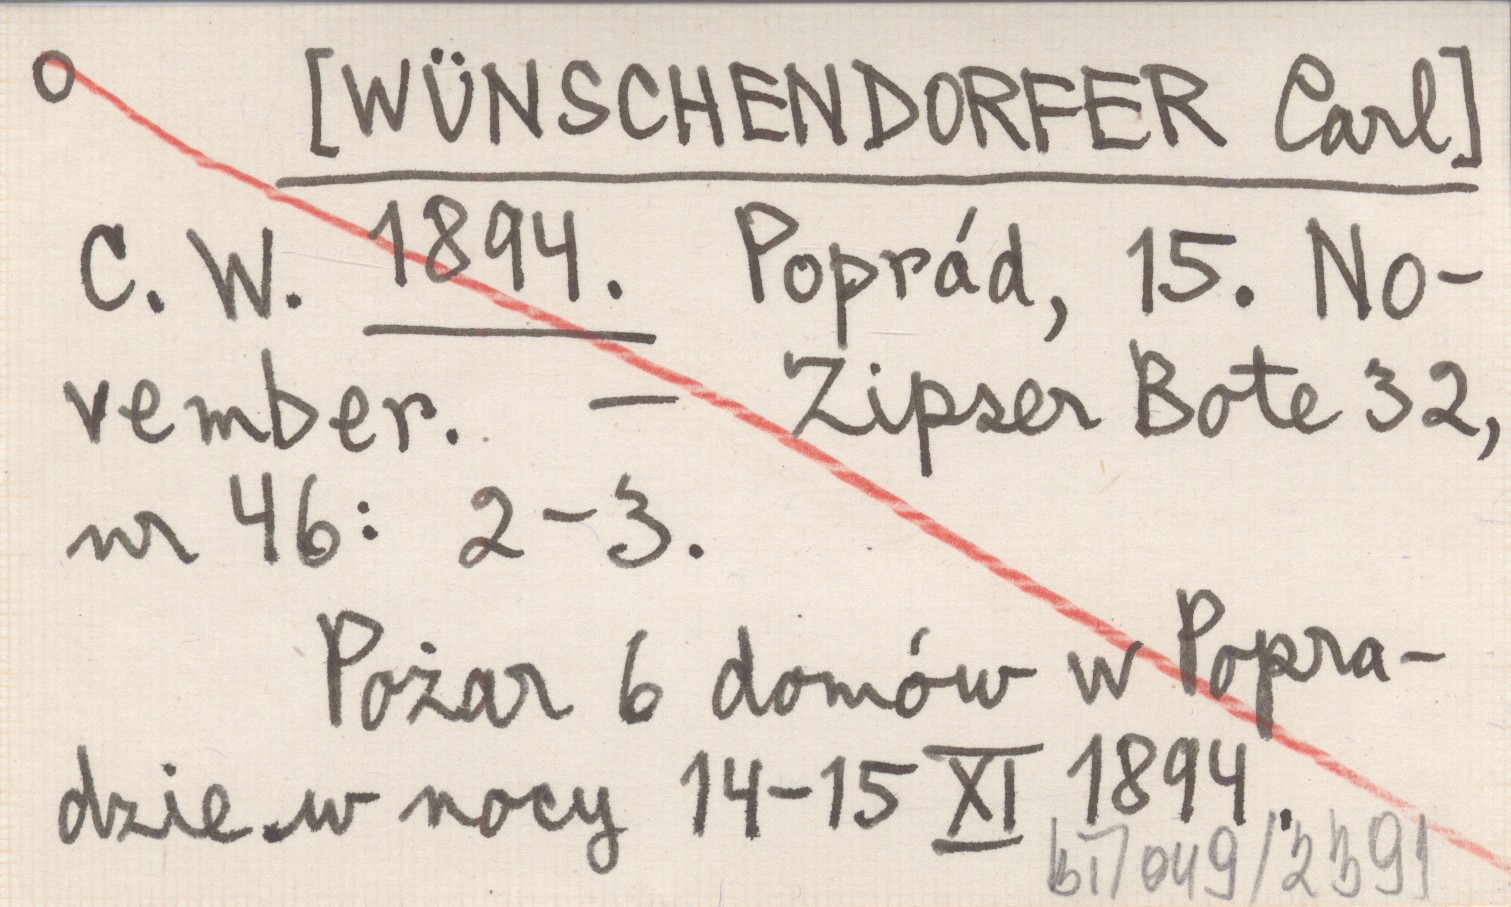 [WÜNSCHENDORFER Carl]
C. W. 1894. Poprád, 15. No-
vember. — Zipser Bote 32,
nr 46: 2-3.
Pożar 6 domów w Popra-
dzie w nocy 14-15 XI 1894.
bi/049/2391